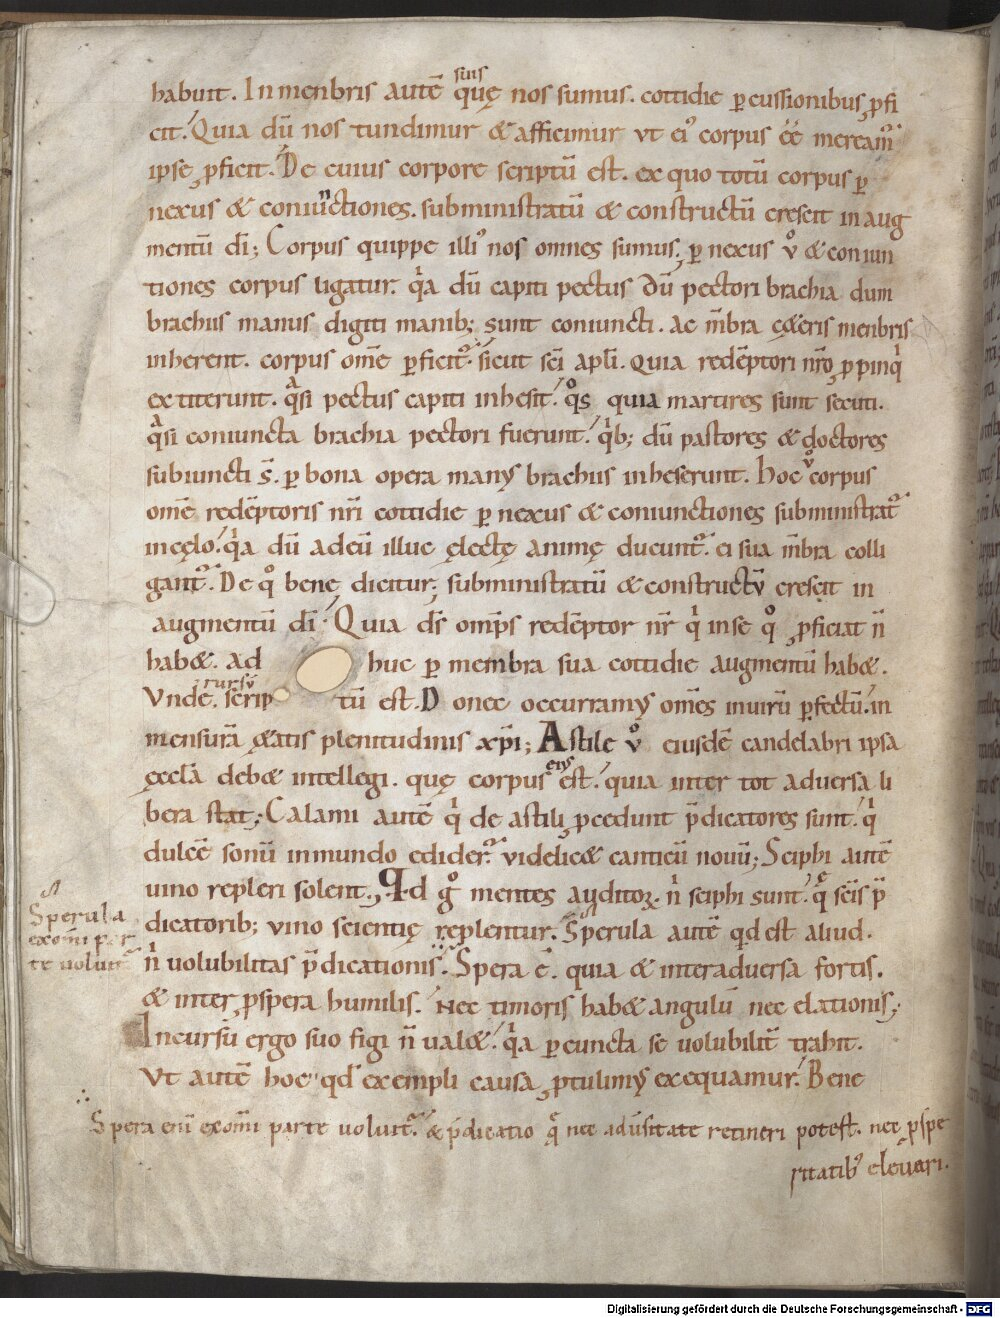 habuit. In menbris autē suis quę nos sumus. cottidie ꝑcussionibus ꝓfi
cit. Quia dū nos tundimur & afficimur ut ei᾽ corpus ēē meream᷑
ipse ꝓficit. De cuius corpore scriptū est. ex quo totū corpus ꝑ
nexus & coniunctiones. subministratū & constructū crescit in aug
mentū dī; Corpus quippe illi᾽ nos omnes sumus. ꝑ nexus ů & coniun
tiones corpus ligatur. qͥa dū capiti pectus dū pectori brachia dum
brachiis manus digiti manib; sunt coniuncti. Ac m̄bra cęteris menbris
inherent. corpus omē ꝑficit᷑. Sicut sc̄i apl̄i. quia redēptori nr̄o ꝓpinqͥ
extiterunt. qͣsi pectus capiti inhesit. qͦs quia martires sunt secuti.
qͣsi coniuncta brachia pectori fuerunt. qͥb; dū pastores & doctores
subiuncti s̄. ꝑ bona opera manus brachiis inheserunt. Hoc ů corpus
omē redēptoris nr̄i cottidie ꝑ nexus & coniunctiones subministrat᷑
in cęlo. qͥa dū ad eū illuc ęlectę animę ducunt᷑. ei sua m̄bra colli
gant᷑. De qͦ bene dicitur; subministratū & constructū crescit in
augmentū dī. Quia ds̄ omp̄s redēptor nr̄ qͥ in se qͦ ꝓficiat n̄
hab&. Ad huc ꝑ membra sua cottidie augmentū hab&.
Unde rursū. scriptū est. Donec occurramus omēs in uirū ꝑfectū. in
mensurā ętatis plenitudinis xp̄i; Astile ů eiusdē candelabri ipsa
ęccl̄a deb& intellegi. quę corpus eius est. quia inter tot aduersa li
bera stat; Calami autē qͥ de astili ꝓcedunt p̄dicatores sunt. qͥ
dulcē sonū in mundo edider᷑. uidelic& canticū nouū; Sciphi autē
uino repleri solent. Qd gͦ mentes auditoꝝ. nͥ sciphi sunt. qͤ sc̄is p̄
dicatorib; uino scientię replentur. Sperula autē qd est aliud.
nͥ uolubilitas p̄dicationis. Spera ē. quia & inter aduersa fortis.
& inter ꝓspera humilis. Nec timoris hab& angulū nec elationis;
Incursū ergo suo figi n̄ ual&. qͥa ꝑ cuncta se uolubilit̄ trahit.
Ut autē hoc qd exempli causa ꝓtulimus exequamur. Bene
Sperula
ex om̄i par
te uoluit᷑
Spera enī ex om̄i parte uoluit᷑. & p̄dicatio qͤ nec aduʼsitate retineri potest. nec ꝓspe
ritatib᾽ eleuari.
Digitalisierung gefördert durch die Deutsche Forschungsgemeinschaft - DFG